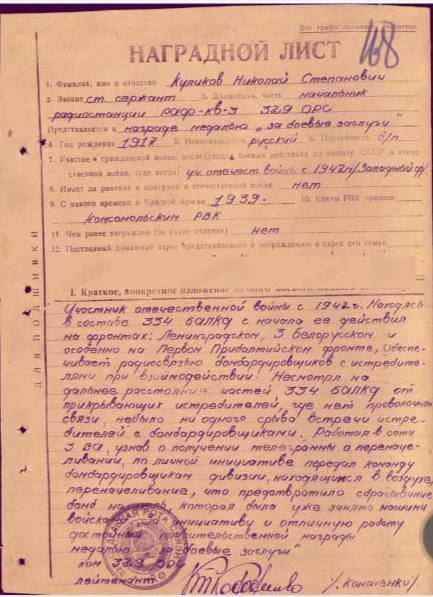 Все графы заполнять полностью
168
НАГРАДНОЙ ЛИСТ
1. Фамилия, имя и отчество Куликов Николай Степанович
2. Звание ст. сержант 3. Должность, часть начальник
радиостанции РАФ-КВ-3 329 ОРС
Представляется к награде медалью „За боевые заслуги"
4. Год рождения 1917 5. Национальность русский 6. Партийность б/п
7. Участие в гражданской войне, последующих боевых действиях по защите СССР и отече-
ственной войне, (где когда) уч. отечеств. войны с 1942г./Западный ф/.
8. Имеет ли ранения и контузии в отечественной войне нет
9. С какого времени в Красной Армии 1939. 10. Каким РВК призван
Комсомольским РВК
11. Чем ранее награжден (за какие отличия) нет
12. Постоянный домашний адрес представляемого к награждению и адрес его семьи
ДЛЯ ПОДШИВКИ
I. Краткое, конкретное изложение личного боевого
Участник отечественной войны с 1942г. Находясь
в составе 334 БАЛКД с начала ее действия
на фронтах: Ленинградском, 3 Белорусском и
особенно на Первом Прибалтийском фронте, обеспе-
чивает радиосвязью бомбардировщиков с истребите-
лями при взаимодействии. Несмотря на
дальнее расстояния частей 334 БАЛКД от
прикрывающих истребителей, где нет проволочной
связи, небыло ни одного срыва встречи истре-
бителей с бомбардировщиками. Работая в сети
3 ВА, узнав о получении телеграммы о перенаце-
ливании, по личной инициативе передал команду
бомбардировщикам дивизии, находящимся в воздухе,
перенацеливание, что предотвратило сбрасывание
бомб на которая была уже занята нашими
войсками инициативу и отличную работу
достойный правительственной награды
медалью „За боевые заслуги"
ком 329 ОРС
лейтенант /Конаненко/.